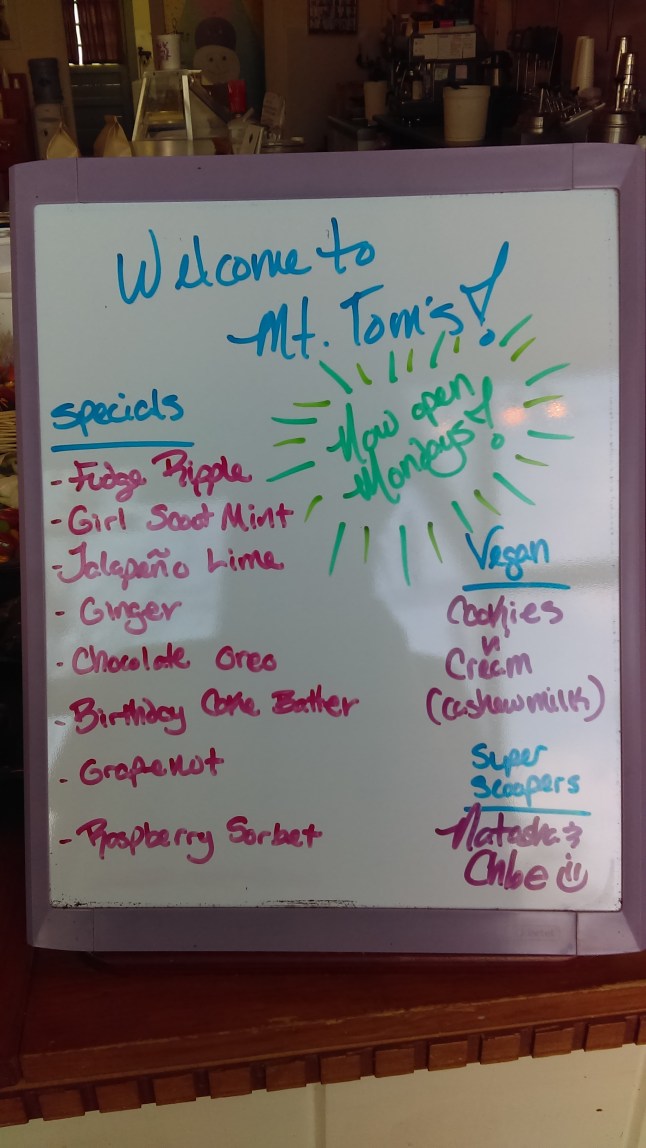 Welcome to
Mt. Tom's!
Now open
Mondays!
Specials
- Fudge Ripple
- Girl Scout Mint
- Jalapeño Lime
- Ginger
- Chocolate Oreo
- Birthday Cake Batter
- Grapenut
- Raspberry Sorbet
Vegan
Cookies
n
Cream
(cashewmilk)
Super
Scoopers
Natasha &
Chloe